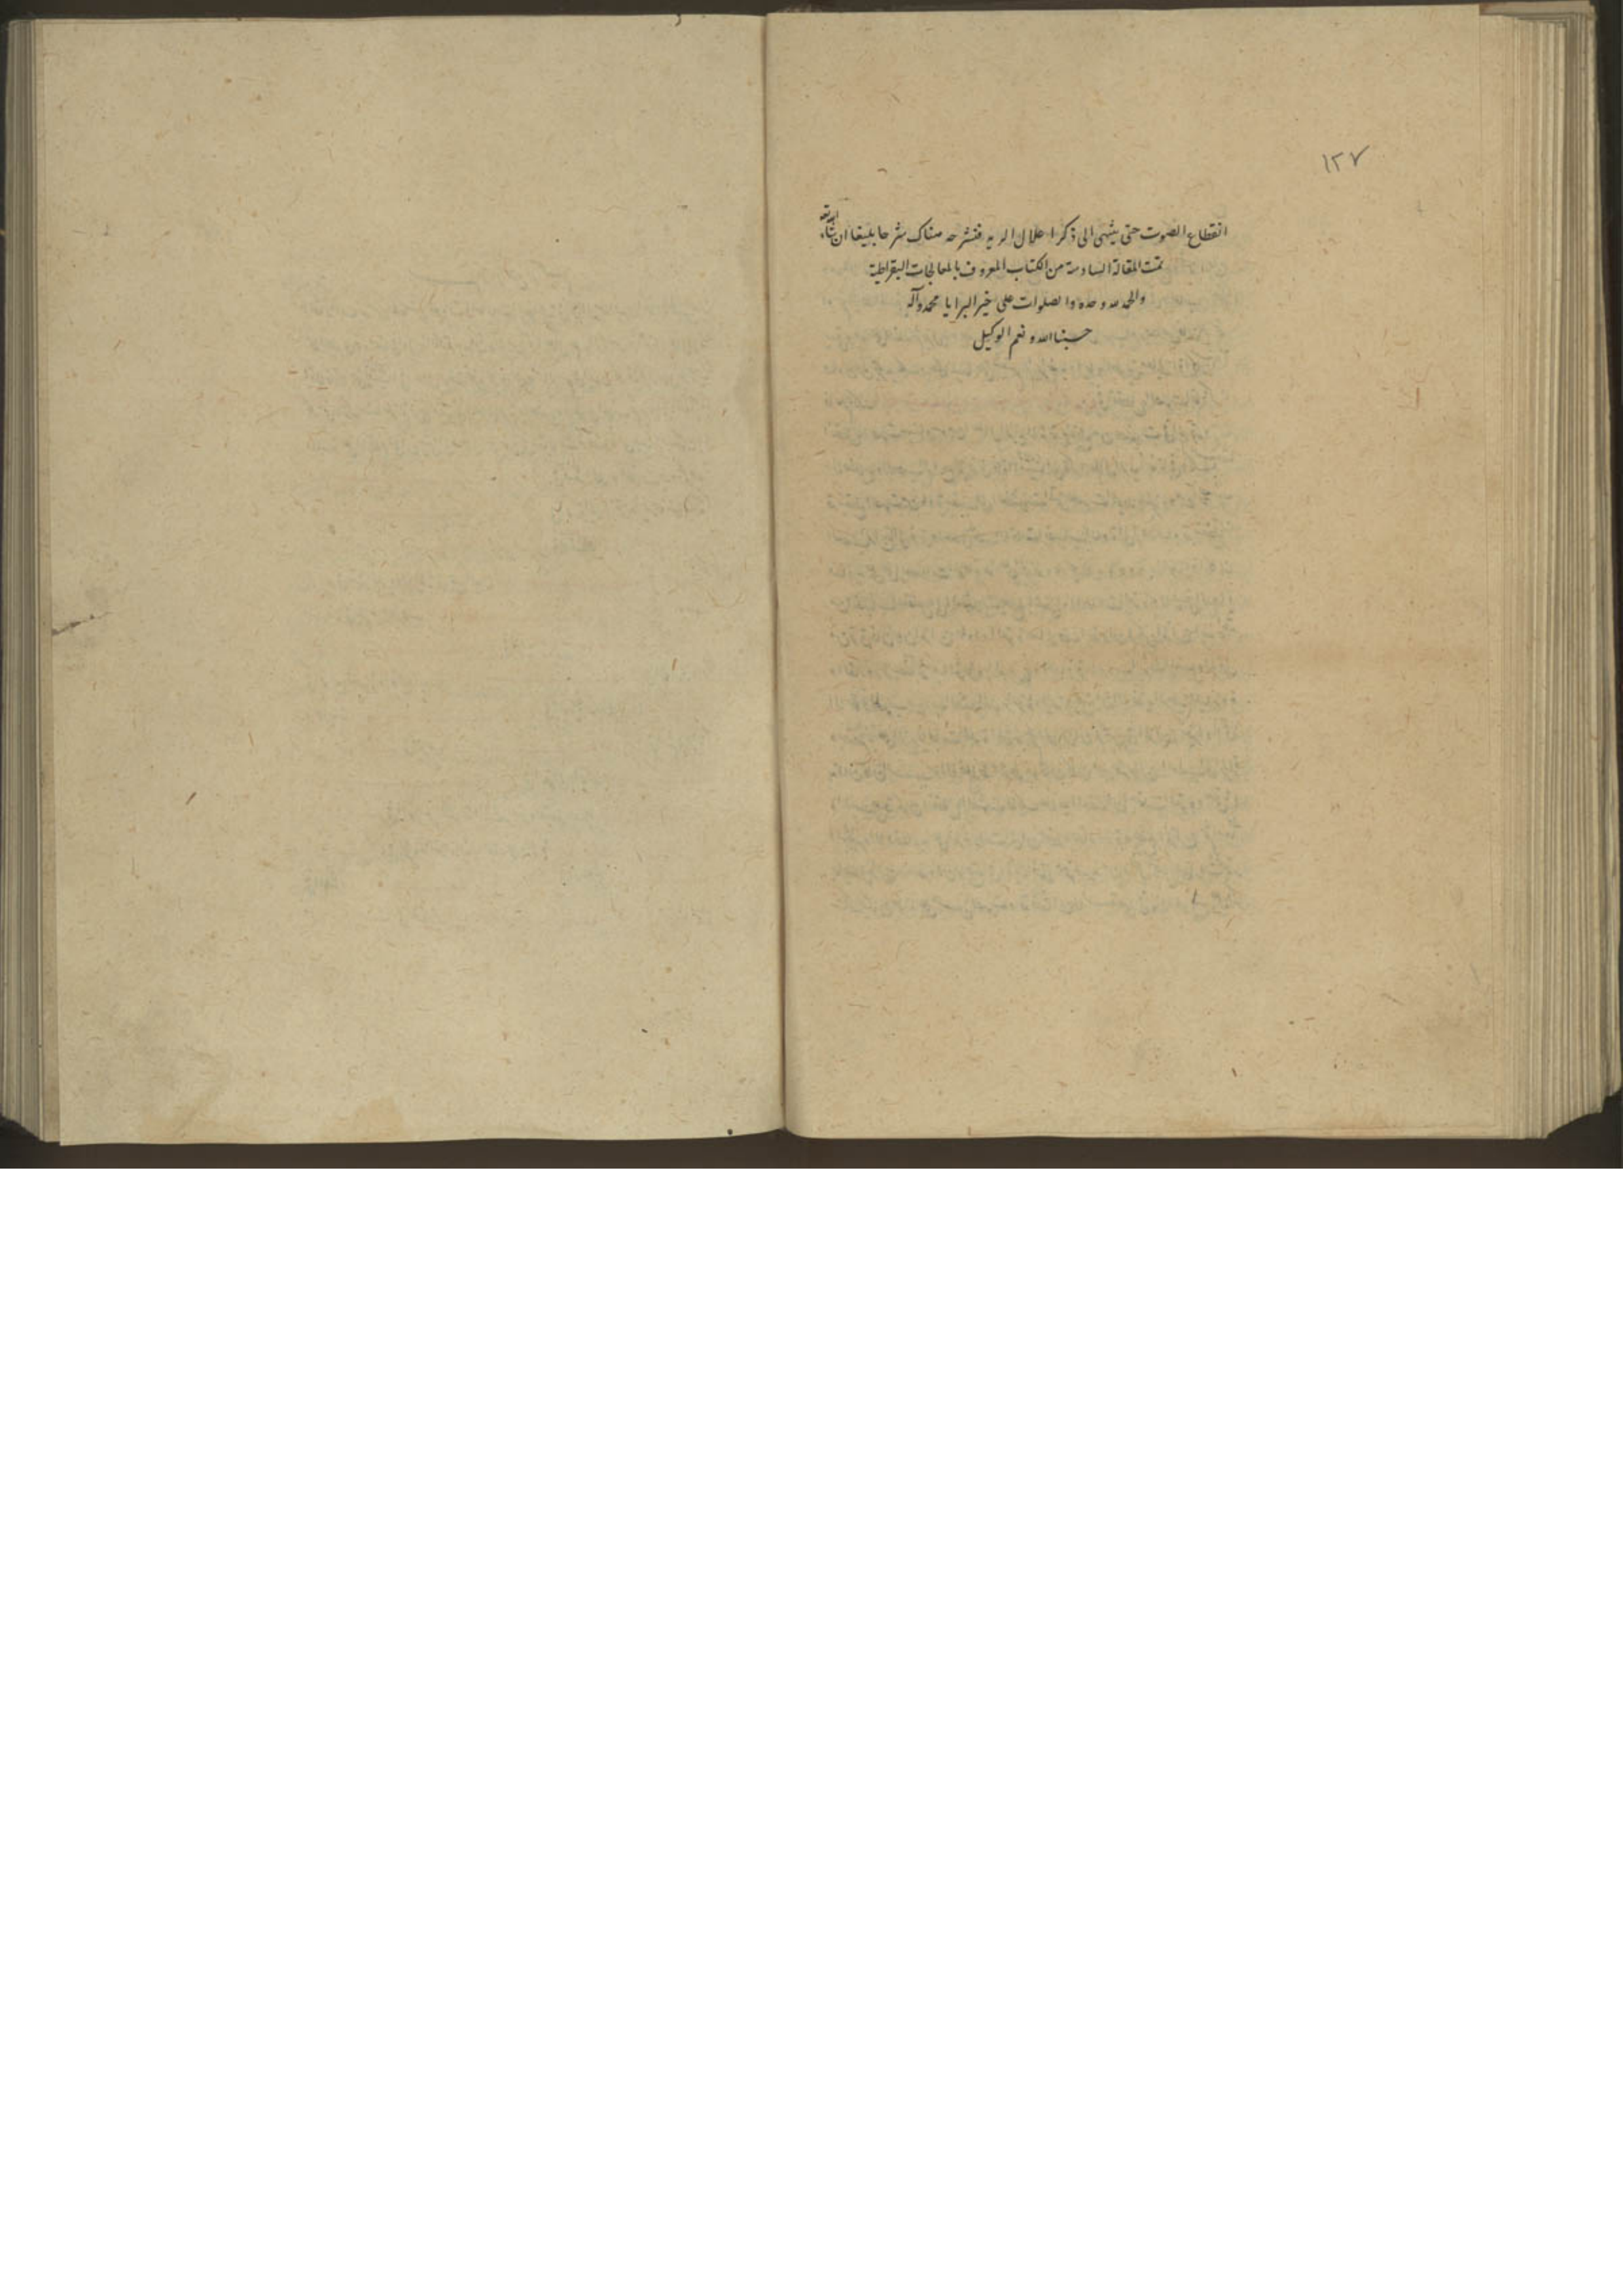 ١٢٧
انقطاع الصوت حتى ينتهى الى ذكر اعلال الريه فنشرحه هناك شرحا بليغا ان شاء الله تعه
تمت المقالة السادسة من الكتاب المعروف بالمعالجات البقراطية
والحمد لله وحده والصلوات على خير البرايا محمد وآله
حسبنا الله ونعم الوكيل